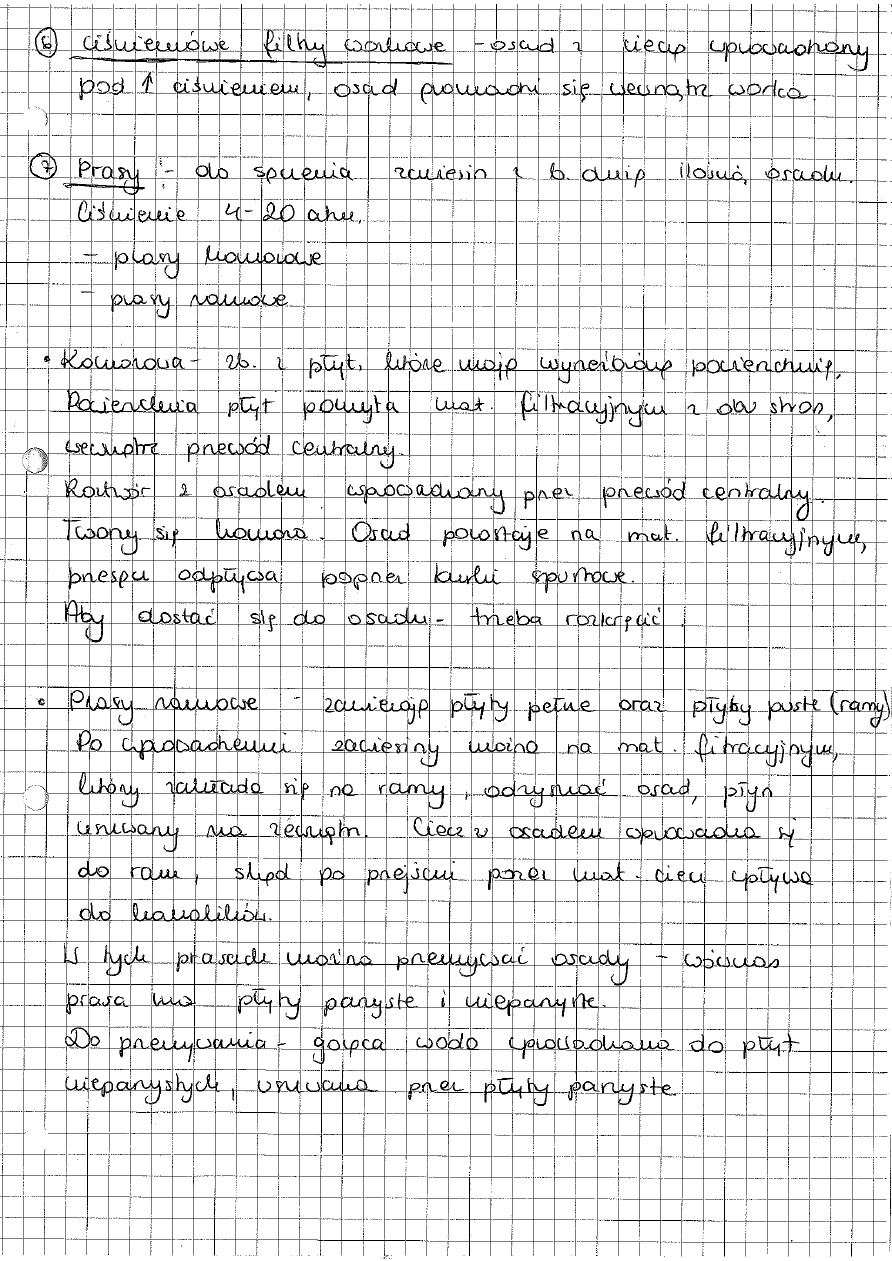 ⑥ ciśnieniowe filtry workowe - osad z cieczą wprowadzony
pod ↑ ciśnieniem, osad gromadzi się wewnątrz worka
⑦ Prasy : - do sączenia zawiesin z b. dużą ilością osadu.
Ciśnienie 4-20 atm.
- prasy komorowe
- prasy ramowe
• Komorowa - zb. z płyt, które mają wyżłobioną powierzchnię.
Powierzchnia płyt pokryta mat. filtracyjnym z obu stron,
wewnątrz przewód centralny.
Roztwór z osadem wprowadzany przez przewód centralny.
Tworzy się komora. Osad pozostaje na mat. filtracyjnym,
przesącz odpływa poprzez kurki spustowe.
Aby dostać się do osadu - trzeba rozkręcić
• Prasy ramowe - zawierają płyty pełne oraz płyty puste (ramy)
Po wprowadzeniu zawiesiny można na mat. fitracyjnym,
który zakłada się na ramy, odzyskać osad, płyn
usuwany na zewnątrz. Ciecz z osadem wprowadza się
do ram, skąd po przejściu przez mat. ciecz wpływa
do kanalików.
W tych prasach można przemywać osady - wówczas
prasa ma płyty parzyste i nieparzyste.
Do przemywania - gorąca woda wprowadzana do płyt
nieparzystych, usuwana przez płyty parzyste